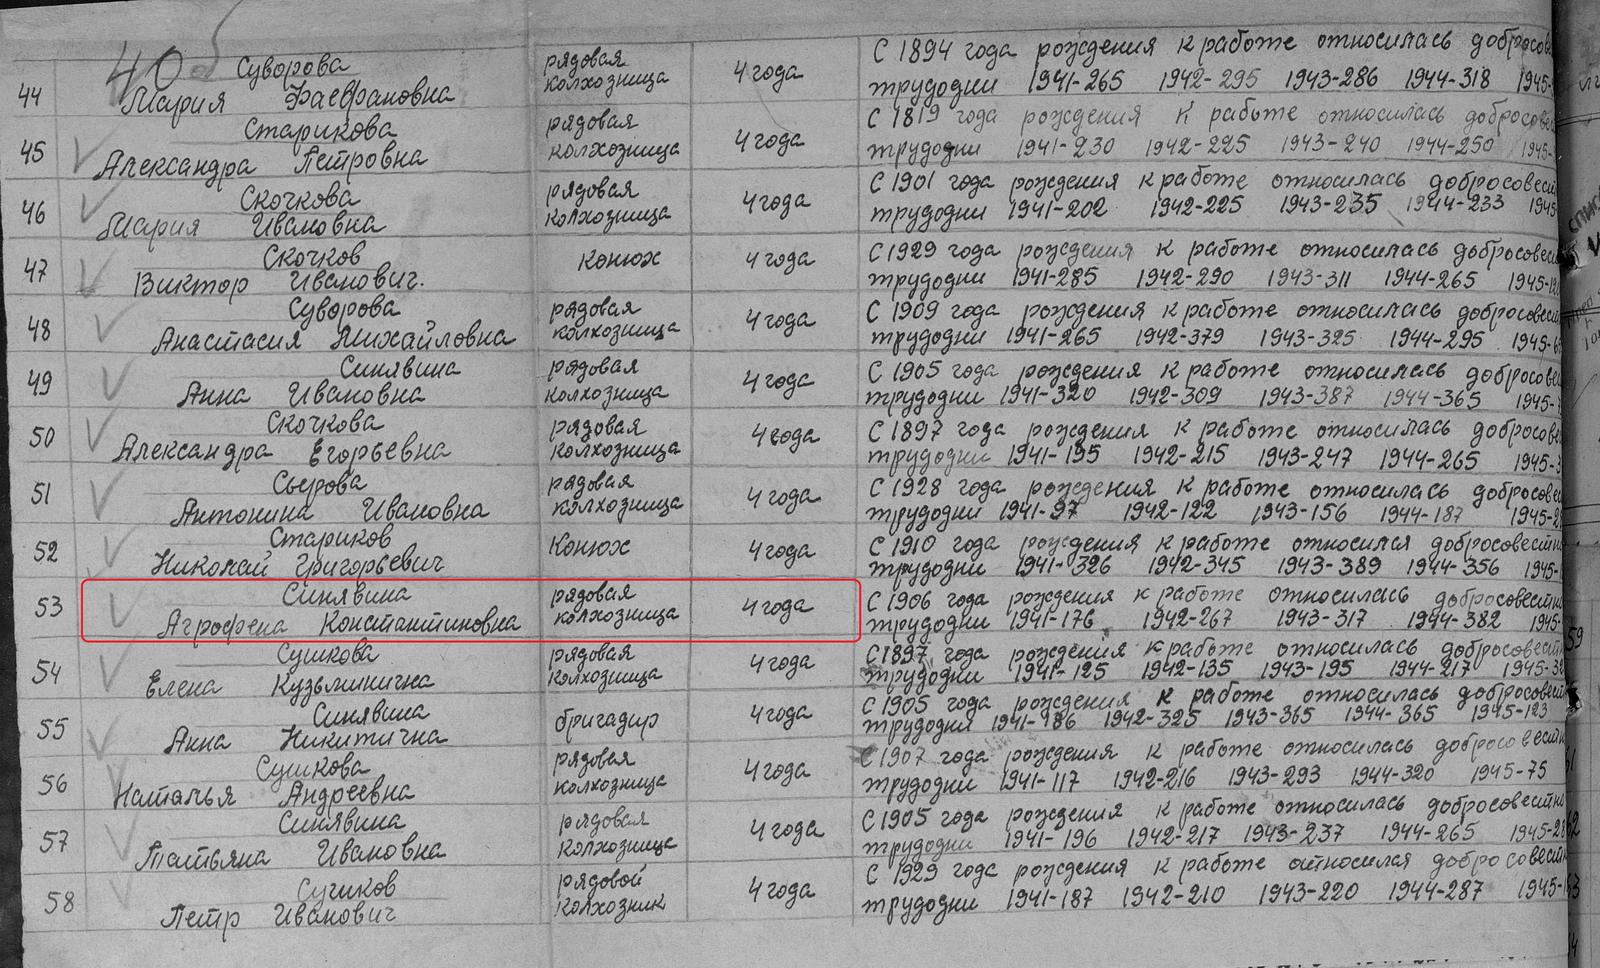 40
44 Суворова рядовая колхозница 4 года С 1894 года рождения к работе относилась добросове
Мария трудодни 1941-265 1942-295 1943-286 1944-318 1945-
45 Старикова рядовая колхозница 4 года С 1819 года рождения к работе относилась добросове
Александра Петровна трудодни 1941-230 1942-225 1943-240 1944-250 1945-
46 Скочкова рядовая колхозница 4 года С 1901 года рождения к работе относилась добросовест
Мария Ивановна трудодни 1941-202 1942-225 1943-235 1944-233 1945-
47 Скочков конюх 4 года С 1929 года рождения к работе относилась добросове
Виктор Иванович. трудодни 1941-285 1942-290 1943-311 1944-265 1945-
48 Суворова рядовая колхозница 4 года С 1909 года рождения к работе относилась добросове
Анастасия Михайловна трудодни 1941-265 1942-379 1943-325 1944-295 1945-
49 Синявина рядовая колхозница 4 года С 1905 года рождения к работе относилась добросове
Анна Ивановна трудодни 1941-320 1942-309 1943-387 1944-365 1945-
50 Скочкова рядовая колхозница 4 года С 1897 года рождения к работе относилась добросове
Александра Егорьевна трудодни 1941-195 1942-215 1943-247 1944-265 1945-
51 Сьерова рядовая колхозница 4 года С 1928 года рождения к работе относилась добросове
Антонина Ивановна трудодни 1941-97 1942-122 1943-156 1944-187 1945-
52 Стариков Конюх 4 года С 1910 года рождения к работе относился добросовестн
Николай Григорьевич трудодни 1941-326 1942-345 1943-389 1944-356 1945-
53 Синявина рядовая колхозница 4 года С 1906 года рождения к работе относилась добросовестн
Агрофена Константиновна трудодни 1941-176 1942-267 1943-317 1944-382 1945-
54 Сушкова рядовая колхозница 4 года С 1897 года рождения к работе относилась добросовестн
Елена Кузьминична трудодни 1941-125 1942-135 1943-195 1944-217 1945-32
55 Синявина бригадир 4 года С 1905 года рождения к работе относилась добросовест
Анна Никитична трудодни 1941-186 1942-325 1943-365 1944-365 1945-123
56 Сушкова рядовая колхозница 4 года С 1907 года рождения к работе относилась добросовестн
Наталья Андреевна трудодни 1941-117 1942-216 1943-293 1944-320 1945-75
57 Синявина рядовая колхозница 4 года С 1905 года рождения к работе относилась добросовестно
Татьяна Ивановна трудодни 1941-196 1942-217 1943-237 1944-265 1945-28
58 Сушков рядовой колхозник 4 года С 1929 года рождения к работе относился добросовестн
Петр Иванович трудодни 1941-187 1942-210 1943-220 1944-287 1945-